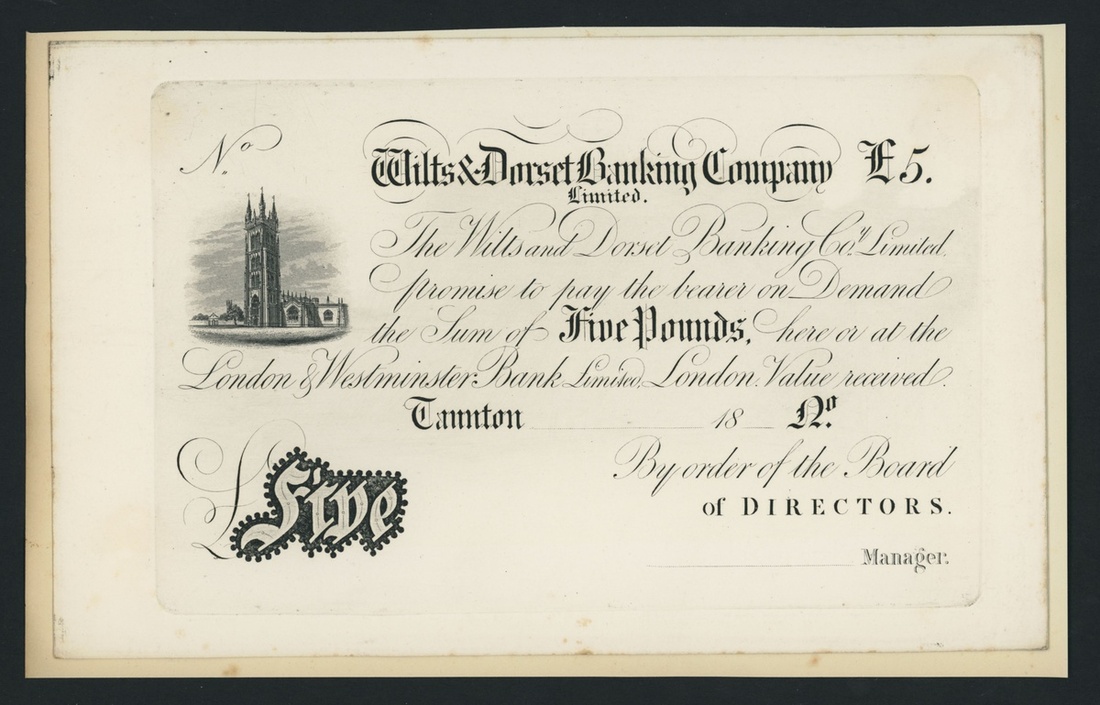 No.
Wilts & Dorset Banking Company £5.
Limited.
The Wilts and Dorset Banking Coy. Limited.
promise to pay the bearer on Demand
the Sum of Five Pounds, here or at the
London & Westminster Bank Limited, London. Value received.
Taunton 18 No.
By order of the Board
of DIRECTORS.
£Five
Manager.